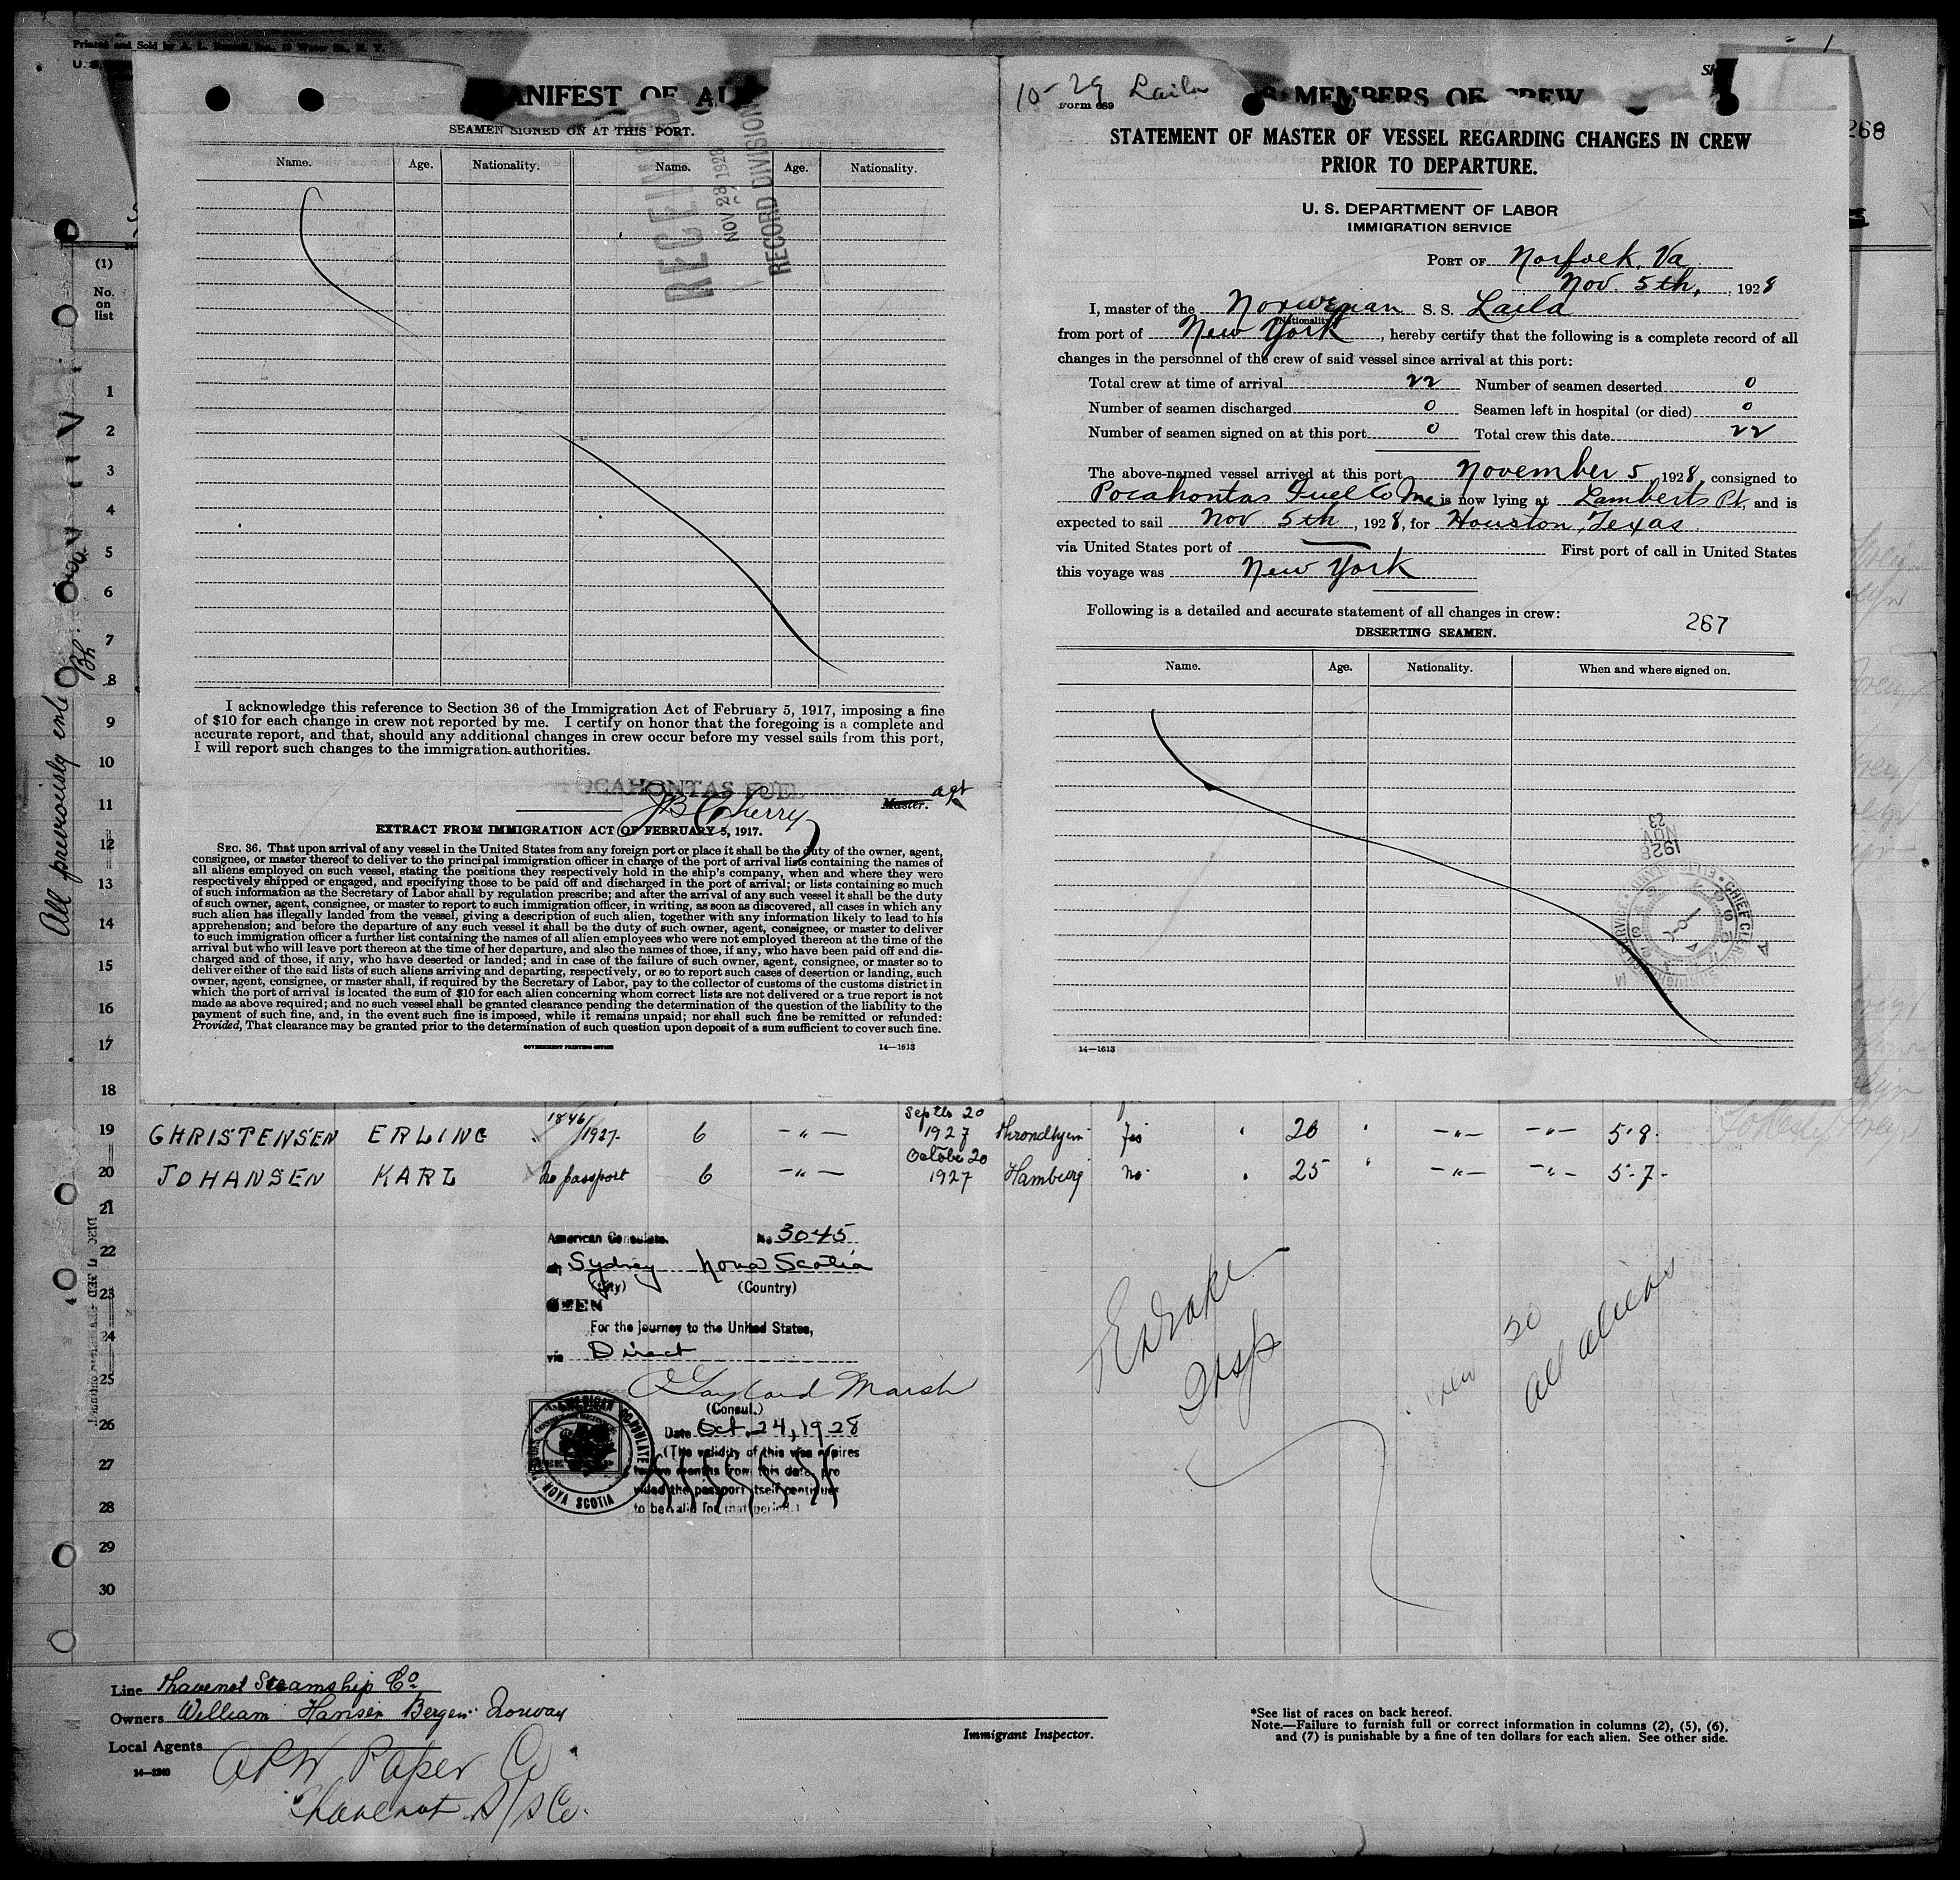 Printed and Sold by
U. S.
MANIFEST OF AL
SEAMEN SIGNED ON AT THIS PORT.
Name. Age. Nationality. Name. Age. Nationality.
RECEIVED
NOV 28 1928
RECORD DIVISION
I acknowledge this reference to Section 36 of the Immigration Act of February 5, 1917, imposing a fine
of $10 for each change in crew not reported by me. I certify on honor that the foregoing is a complete and
accurate report, and that, should any additional changes in crew occur before my vessel sails from this port,
I will report such changes to the immigration authorities.
POCAHONTAS FUEL
JB Cherry agt
Master.
EXTRACT FROM IMMIGRATION ACT OF FEBRUARY 5, 1917.
SEC. 36. That upon arrival of any vessel in the United States from any foreign port or place it shall be the duty of the owner, agent,
consignee, or master thereof to deliver to the principal immigration officer in charge of the port of arrival lists containing the names of
all aliens employed on such vessel, stating the positions they respectively hold in the ship's company, when and where they were
respectively shipped or engaged, and specifying those to be paid off and discharged in the port of arrival; or lists containing so much
of such information as the Secretary of Labor shall by regulation prescribe; and after the arrival of any such vessel it shall be the duty
of such owner, agent, consignee, or master to report to such immigration officer, in writing, as soon as discovered, all cases in which any
such alien has illegally landed from the vessel, giving a description of such alien, together with any information likely to lead to his
apprehension; and before the departure of any such vessel it shall be the duty of such owner, agent, consignee, or master to deliver
to such immigration officer a further list containing the names of all alien employees who were not employed thereon at the time of the
arrival but who will leave port thereon at the time of her departure, and also the names of those, if any, who have been paid off and dis-
charged and of those, if any, who have deserted or landed; and in case of the failure of such owner, agent, consignee, or master so to
deliver either of the said lists of such aliens arriving and departing, respectively, or so to report such cases of desertion or landing, such
owner, agent, consignee, or master shall, if required by the Secretary of Labor, pay to the collector of customs of the customs district in
which the port of arrival is located the sum of $10 for each alien concerning whom correct lists are not delivered or a true report is not
made as above required; and no such vessel shall be granted clearance pending the determination of the question of the liability to the
payment of such fine, and, in the event such fine is imposed, while it remains unpaid; nor shall such fine be remitted or refunded:
Provided, That clearance may be granted prior to the determination of such question upon deposit of a sum sufficient to cover such fine.
GOVERNMENT PRINTING OFFICE 14—1613
10-29 Laila
Form 689
MEMBERS OF CREW
STATEMENT OF MASTER OF VESSEL REGARDING CHANGES IN CREW
PRIOR TO DEPARTURE.
U. S. DEPARTMENT OF LABOR
IMMIGRATION SERVICE
PORT OF Norfolk, Va
Nov. 5th, , 1928
I, master of the Norwegian S. S. Laila
(Nationality)
from port of New York, hereby certify that the following is a complete record of all
changes in the personnel of the crew of said vessel since arrival at this port:
Total crew at time of arrival 22 Number of seamen deserted 0
Number of seamen discharged 0 Seamen left in hospital (or died) 0
Number of seamen signed on at this port 0 Total crew this date 22
The above-named vessel arrived at this port November 5, 1928, consigned to
Pocahontas Fuel Co Inc is now lying at Lamberts Pt, and is
expected to sail Nov 5th, 1928, for Houston, Texas
via United States port of — First port of call in United States
this voyage was New York
Following is a detailed and accurate statement of all changes in crew:
267
DESERTING SEAMEN.
Name. Age. Nationality. When and where signed on.
1928
NOV
23
CHIEF CLERK
14—1613
268
(1)
No.
on
list
1
2
3
4
5
6
7
8
9
10
11
12
13
14
15
16
17
18
All previously
19 CHRISTENSEN ERLING 1846/1927 6 -"- Septbr 20 1927 Yes 20 -"- -"- 5-8.
20 JOHANSEN KARL No passport 6 -"- October 20 1927 Hamburg No 25 -"- -"- 5-7-
21
22
23
24
25
26
27
28
29
30
American Consulate. No 3045
at Sydney Nova Scotia
(City) (Country)
SEEN
For the journey to the United States,
via Direct
Gaylord Marsh
(Consul.)
Date Oct. 24, 1928
(The validity of this visa expires
twelve months from this date, pro
vided the passport itself continues
to be valid for that period.)
AMERICAN CONSULATE
NOVA SCOTIA
Drake
Insp
crew 20
all aliens
Line Thavenot Steamship Co
Owners William Hansen Bergen Norway
Local Agents
APW Paper Co
Thavenot S/S Co.
14—1240
Immigrant Inspector.
*See list of races on back hereof.
Note.—Failure to furnish full or correct information in columns (2), (5), (6),
and (7) is punishable by a fine of ten dollars for each alien. See other side.